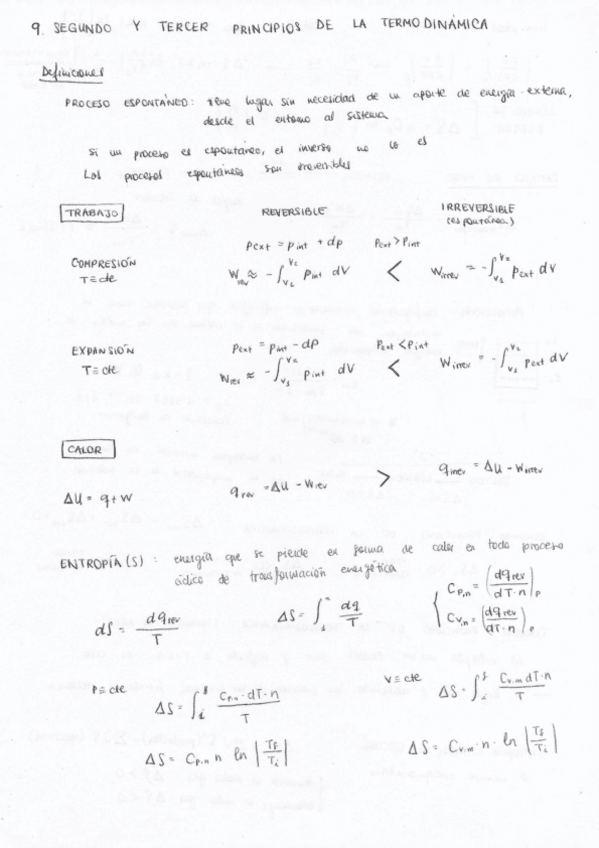 9. SEGUNDO Y TERCER PRINCIPIOS DE LA TERMODINÁMICA
Definiciones
PROCESO ESPONTÁNEO: tiene lugar sin necesidad de un aporte de energía externa,
desde el entorno al sistema
Si un proceso es espontáneo, el inverso no lo es
Los procesos espontáneos son irreversibles
TRABAJO REVERSIBLE IRREVERSIBLE
(espontánea)
Pext = Pint + dp Pext > Pint
COMPRESIÓN
T ≡ cte
Wrev ≈ - ∫_{V1}^{V2} Pint dV < Wirrev = - ∫_{V1}^{V2} Pext dV
Pext = Pint - dp Pext < Pint
EXPANSIÓN
T ≡ cte
Wrev ≈ - ∫_{V1}^{V2} Pint dV < Wirrev = - ∫_{V1}^{V2} Pext dV
CALOR
ΔU = q + W qrev = ΔU - Wrev > qirrev = ΔU - Wirrev
ENTROPÍA (S): energía que se pierde en forma de calor en todo proceso
cíclico de transformación energética
dS = dqrev / T ΔS = ∫ dq / T
Cp,n = (dqrev / dT·n)p
Cv,n = (dqrev / dT·n)p
P ≡ cte V ≡ cte
ΔS = ∫_i^f Cp,n · dT·n / T ΔS = ∫_i^f Cv,m dT·n / T
ΔS = Cp,n n ln |Tf / Ti| ΔS = Cv,m · n · ln |Tf / Ti|